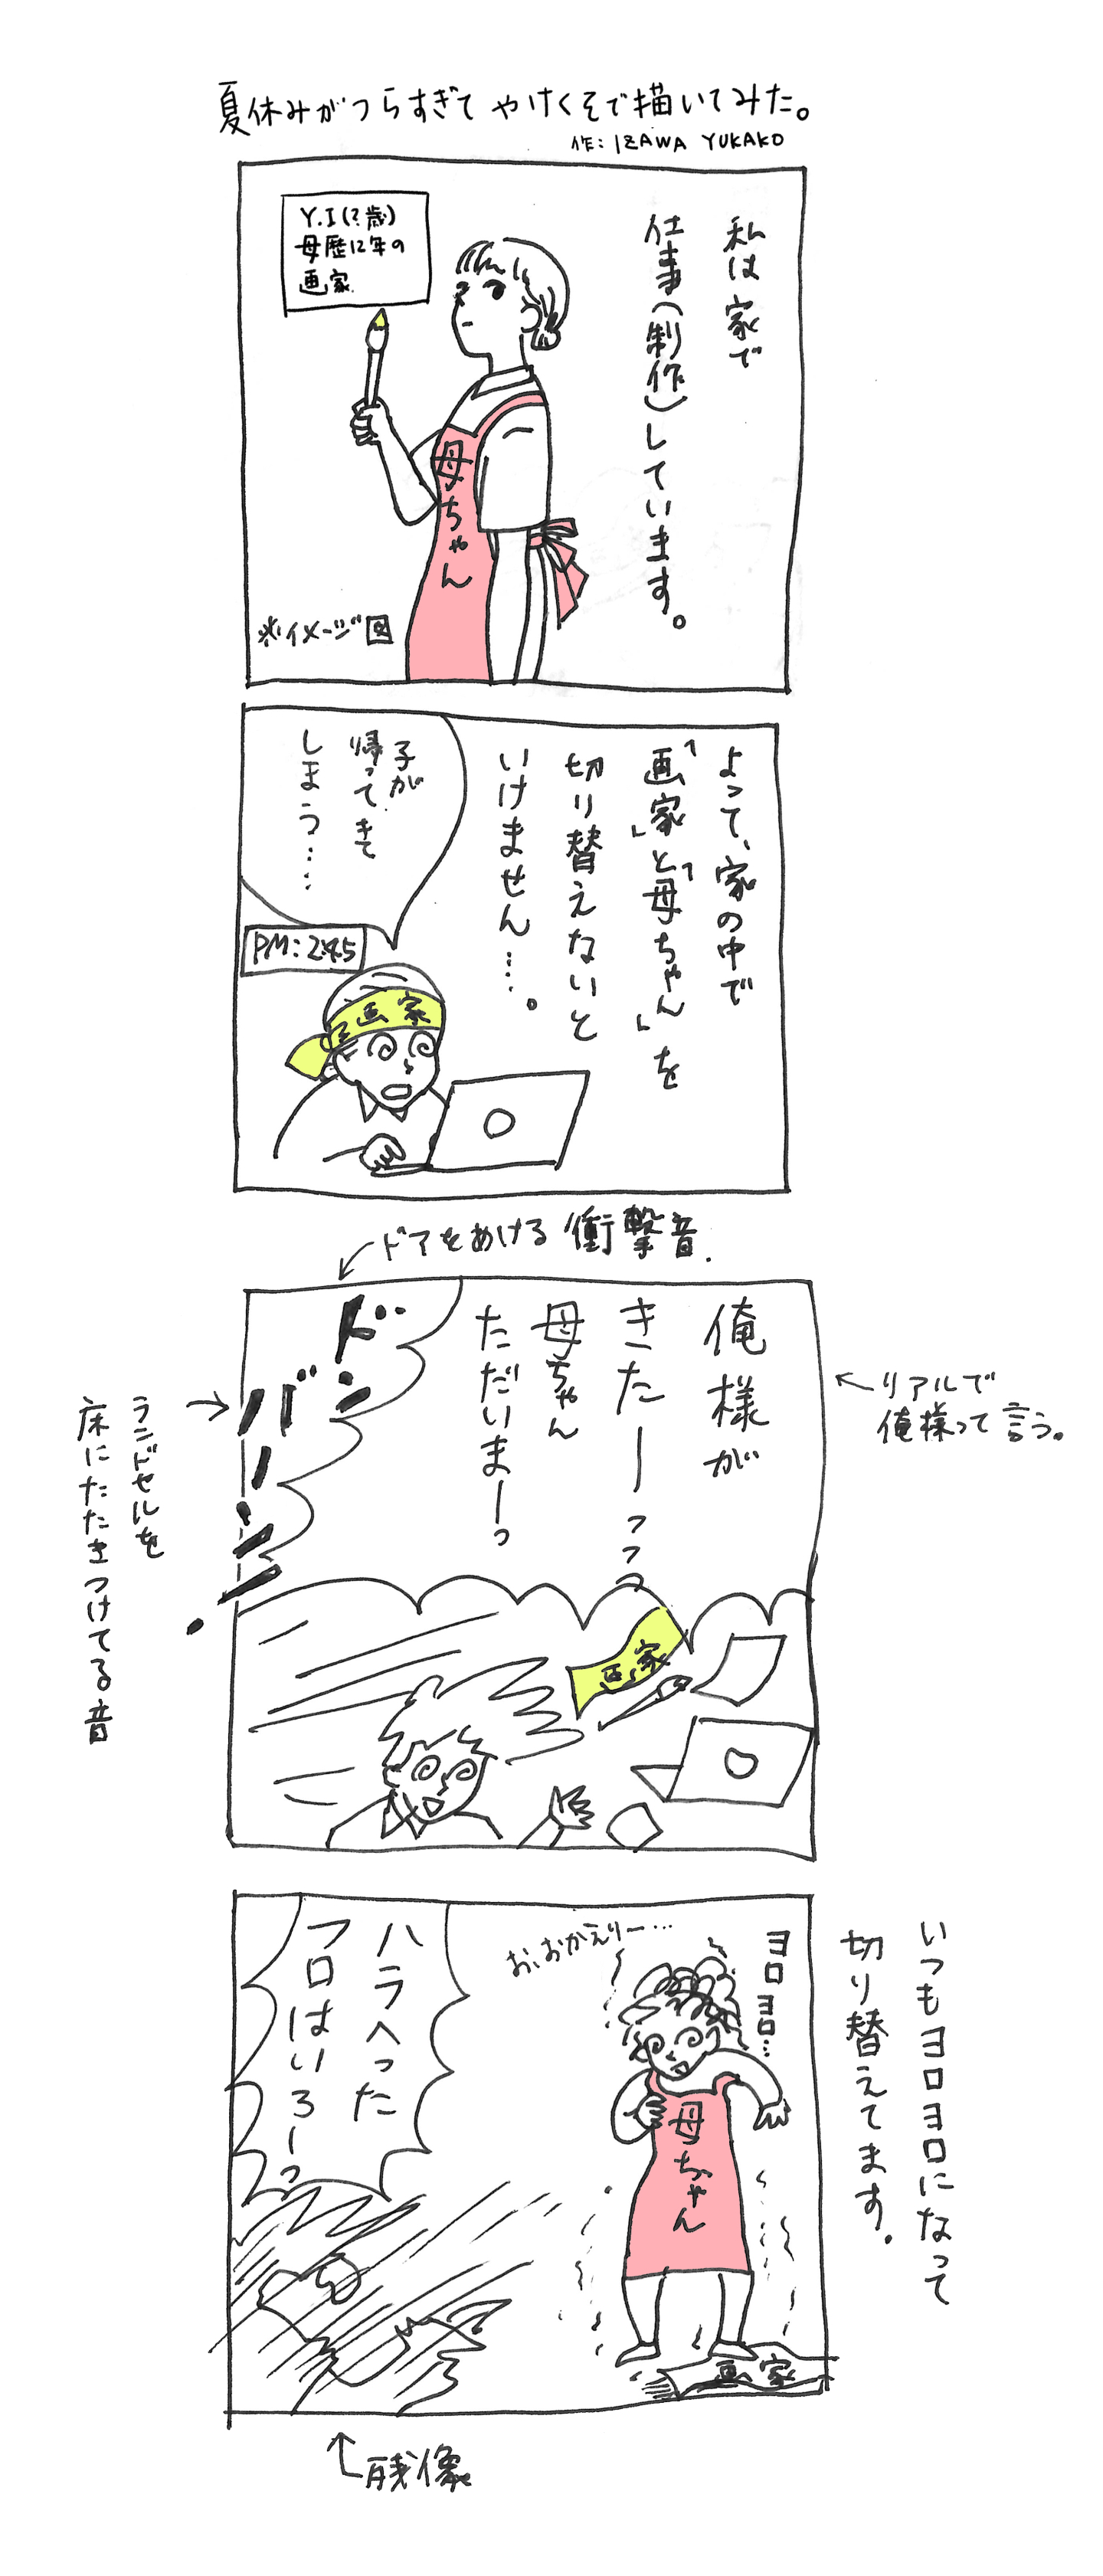 夏休みがつらすぎて やけくそで描いてみた。
作：IZAWA YUKAKO
私は家で
仕事（制作）しています。
Y.I（？歳）
母歴12年の
画家.
母ちゃん
※イメージ図
よって、家の中で
「画家」と「母ちゃん」を
切り替えないと
いけません…。
子が
帰ってきて
しまう…
PM：2:45
画家
ドアをあける衝撃音.
俺様が
きたーーっっっ
母ちゃん
ただいまーっ
ドン
バーン
リアルで
俺様って言う。
ランドセルを
床にたたきつけてる音
画家
いつもヨロヨロになって
切り替えてます。
ヨロヨロ…
お、おかえりー…
母ちゃん
ハラへった
フロはいろーっ
画家
残像